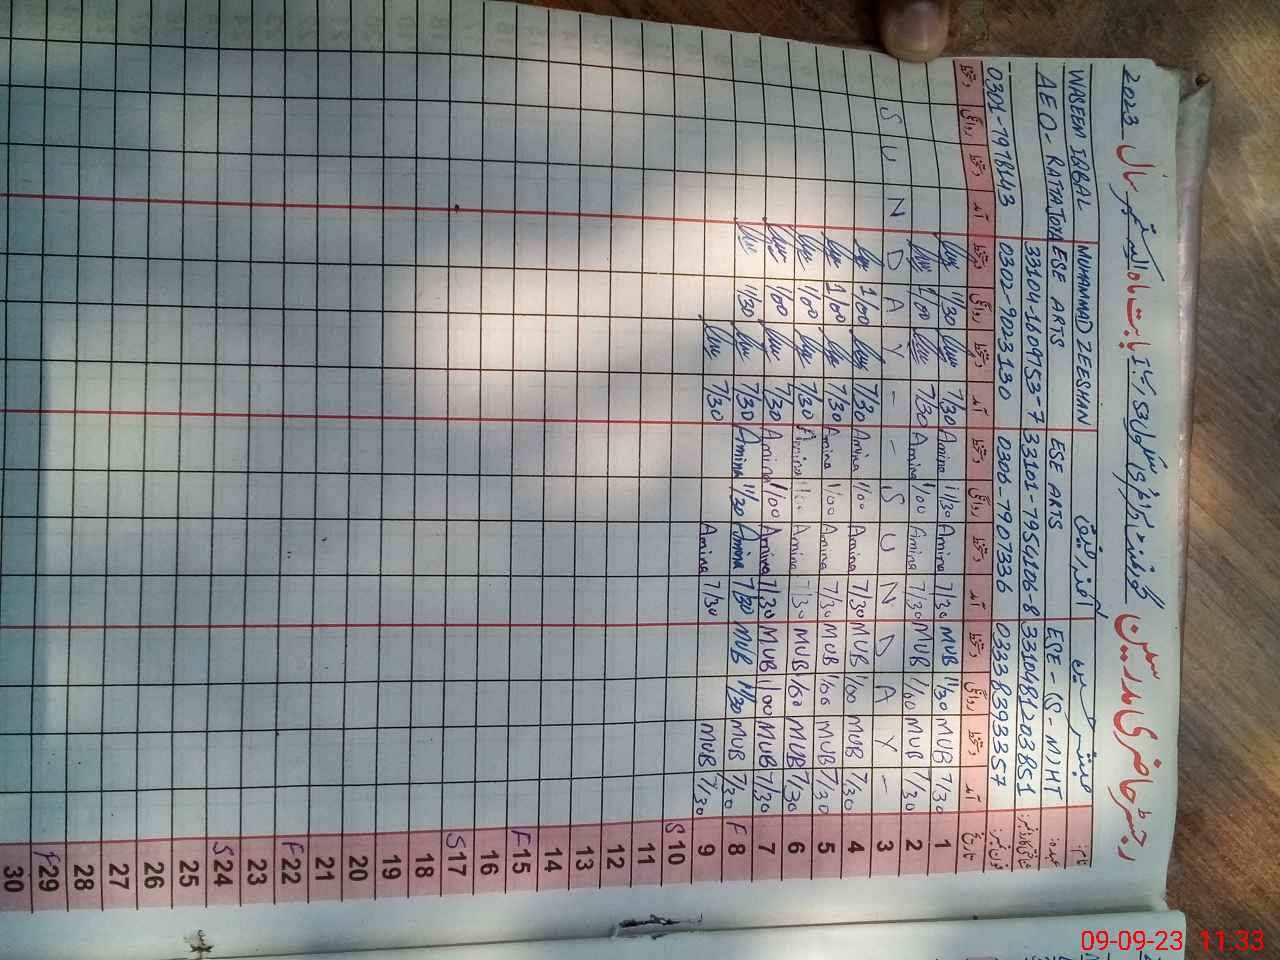 رجسٹر حاضری مدرسین گورنمنٹ پرائمری سکول بابت ماہ ستمبر سال 2023
نام: مبشر آمنہ رفیق MUHAMMAD ZEESHAN WASEEM IQBAL
عہدہ: ESE-(S-M)HT ESE ARTS ESE ARTS AEO-
3310481203851 33101-7954106-8 33104-1609753-7
فون نمبر: 03338393357 0306-7907336 0302-9023130
تاریخ آمد دستخط روانگی دستخط آمد دستخط روانگی دستخط آمد دستخط روانگی دستخط آمد دستخط روانگی دستخط
1 7/30 MUB 11/30 MUB 7/30 Amina 11/30 Amina 7/30 11/30
2 7/30 MUB 1/00 MUB 7/30 Amina 1/00 Amina 7/30 1/00
3 - Y A D N U S - - Y A D N U S
4 7/30 MUB 1/00 MUB 7/30 Amina 1/00 Amina 7/30 1/00
5 7/30 MUB 1/00 MUB 7/30 Amina 1/00 Amina 7/30 1/00
6 7/30 MUB 1/00 MUB 7/30 Amina Amina 7/30 1/00
7 7/30 MUB 1/00 MUB 7/30 Amina 1/00 Amina 7/30 1/00
F 8 7/30 MUB 11/30 MUB 7/30 Amina 11/30 Amina 7/30 11/30
9 7/30 MUB 7/30 Amina 7/30
S 10
11
12
13
14
F 15
16
S 17
18
19
20
21
F 22
23
S 24
25
26
27
28
F 29
30
09-09-23 11:33